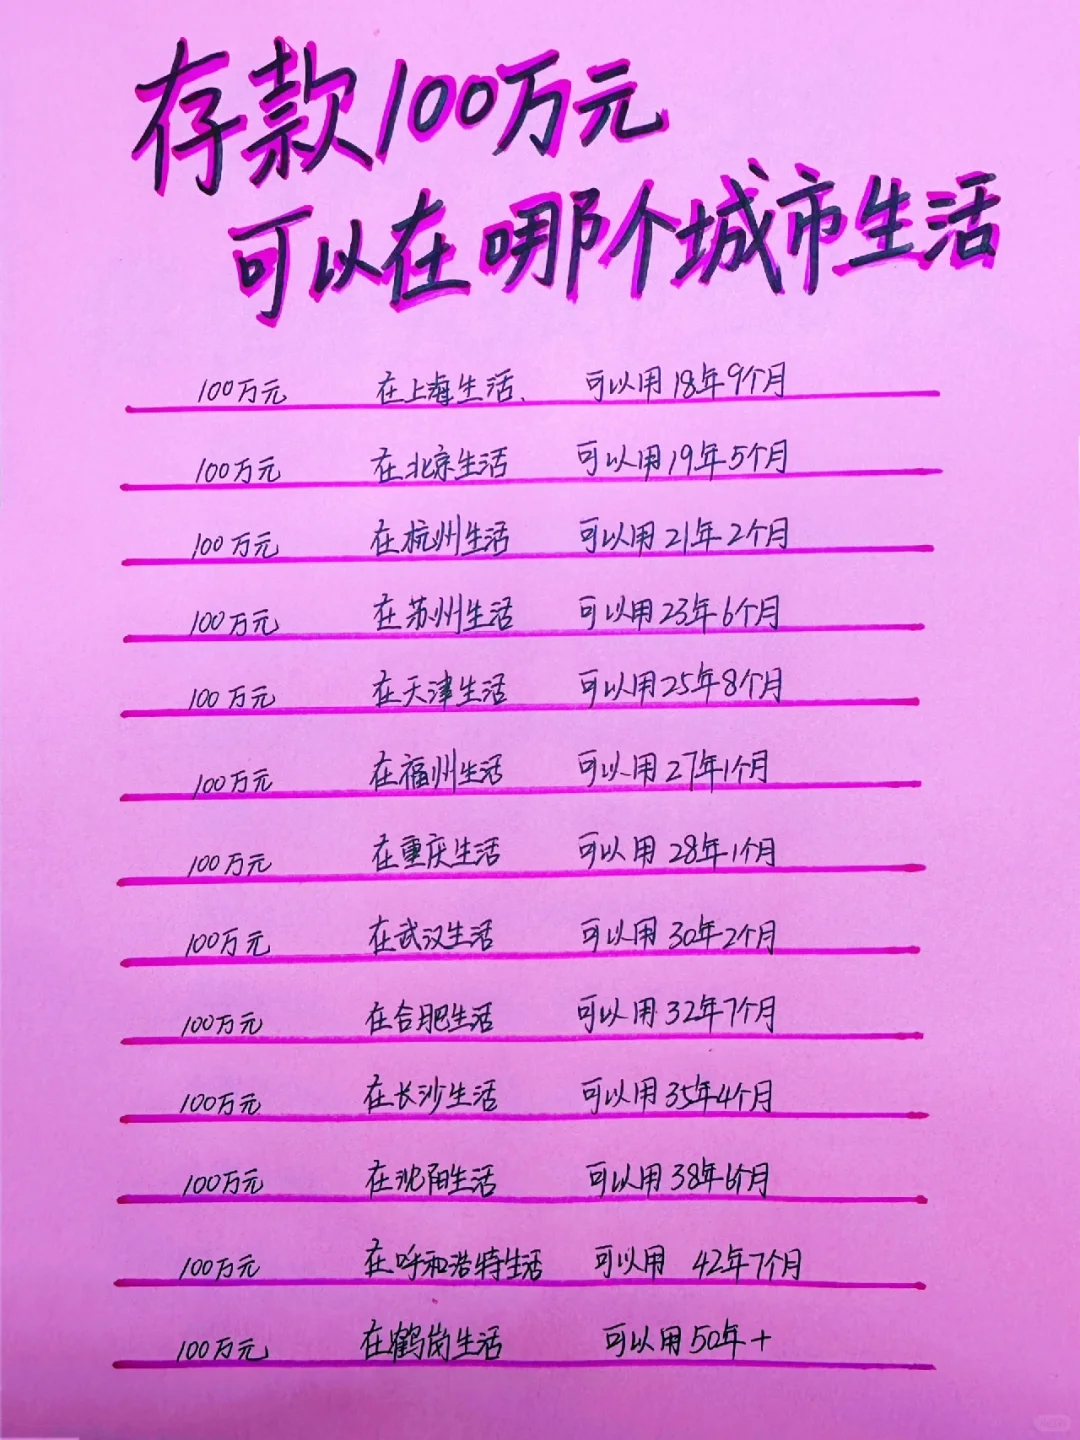 存款100万元
可以在哪个城市生活
100万元 在上海生活、 可以用18年9个月
100万元 在北京生活 可以用19年5个月
100万元 在杭州生活 可以用21年2个月
100万元 在苏州生活 可以用23年6个月
100万元 在天津生活 可以用25年8个月
100万元 在福州生活 可以用27年1个月
100万元 在重庆生活 可以用28年1个月
100万元 在武汉生活 可以用30年2个月
100万元 在合肥生活 可以用32年7个月
100万元 在长沙生活 可以用35年4个月
100万元 在沈阳生活 可以用38年6个月
100万元 在呼和浩特生活 可以用 42年7个月
100万元 在鹤岗生活 可以用50年+